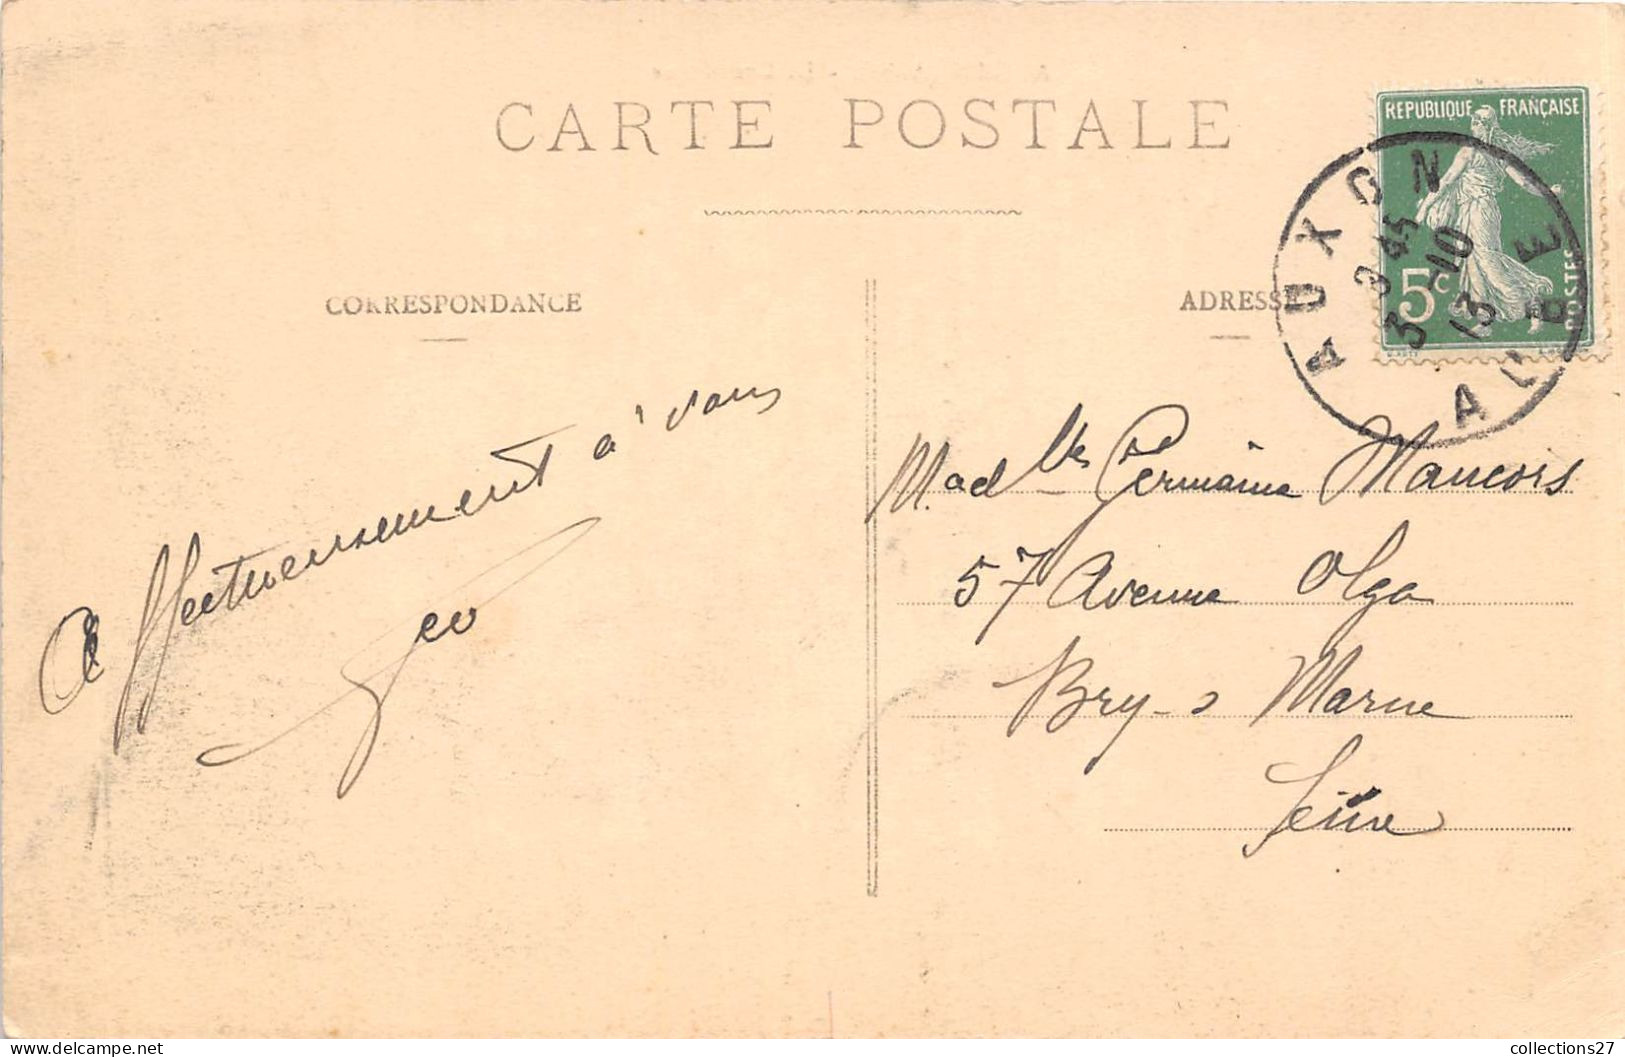 CARTE POSTALE
CORRESPONDANCE
ADRESSE
REPUBLIQUE FRANÇAISE
5c
POSTES
AUXON
3 45
3 -10
13
AUBE
Affectueusement à vous
Geo
Madlle Germaine Maucors
57 Avenue Olga
Bry-s Marne
Seine
collections27